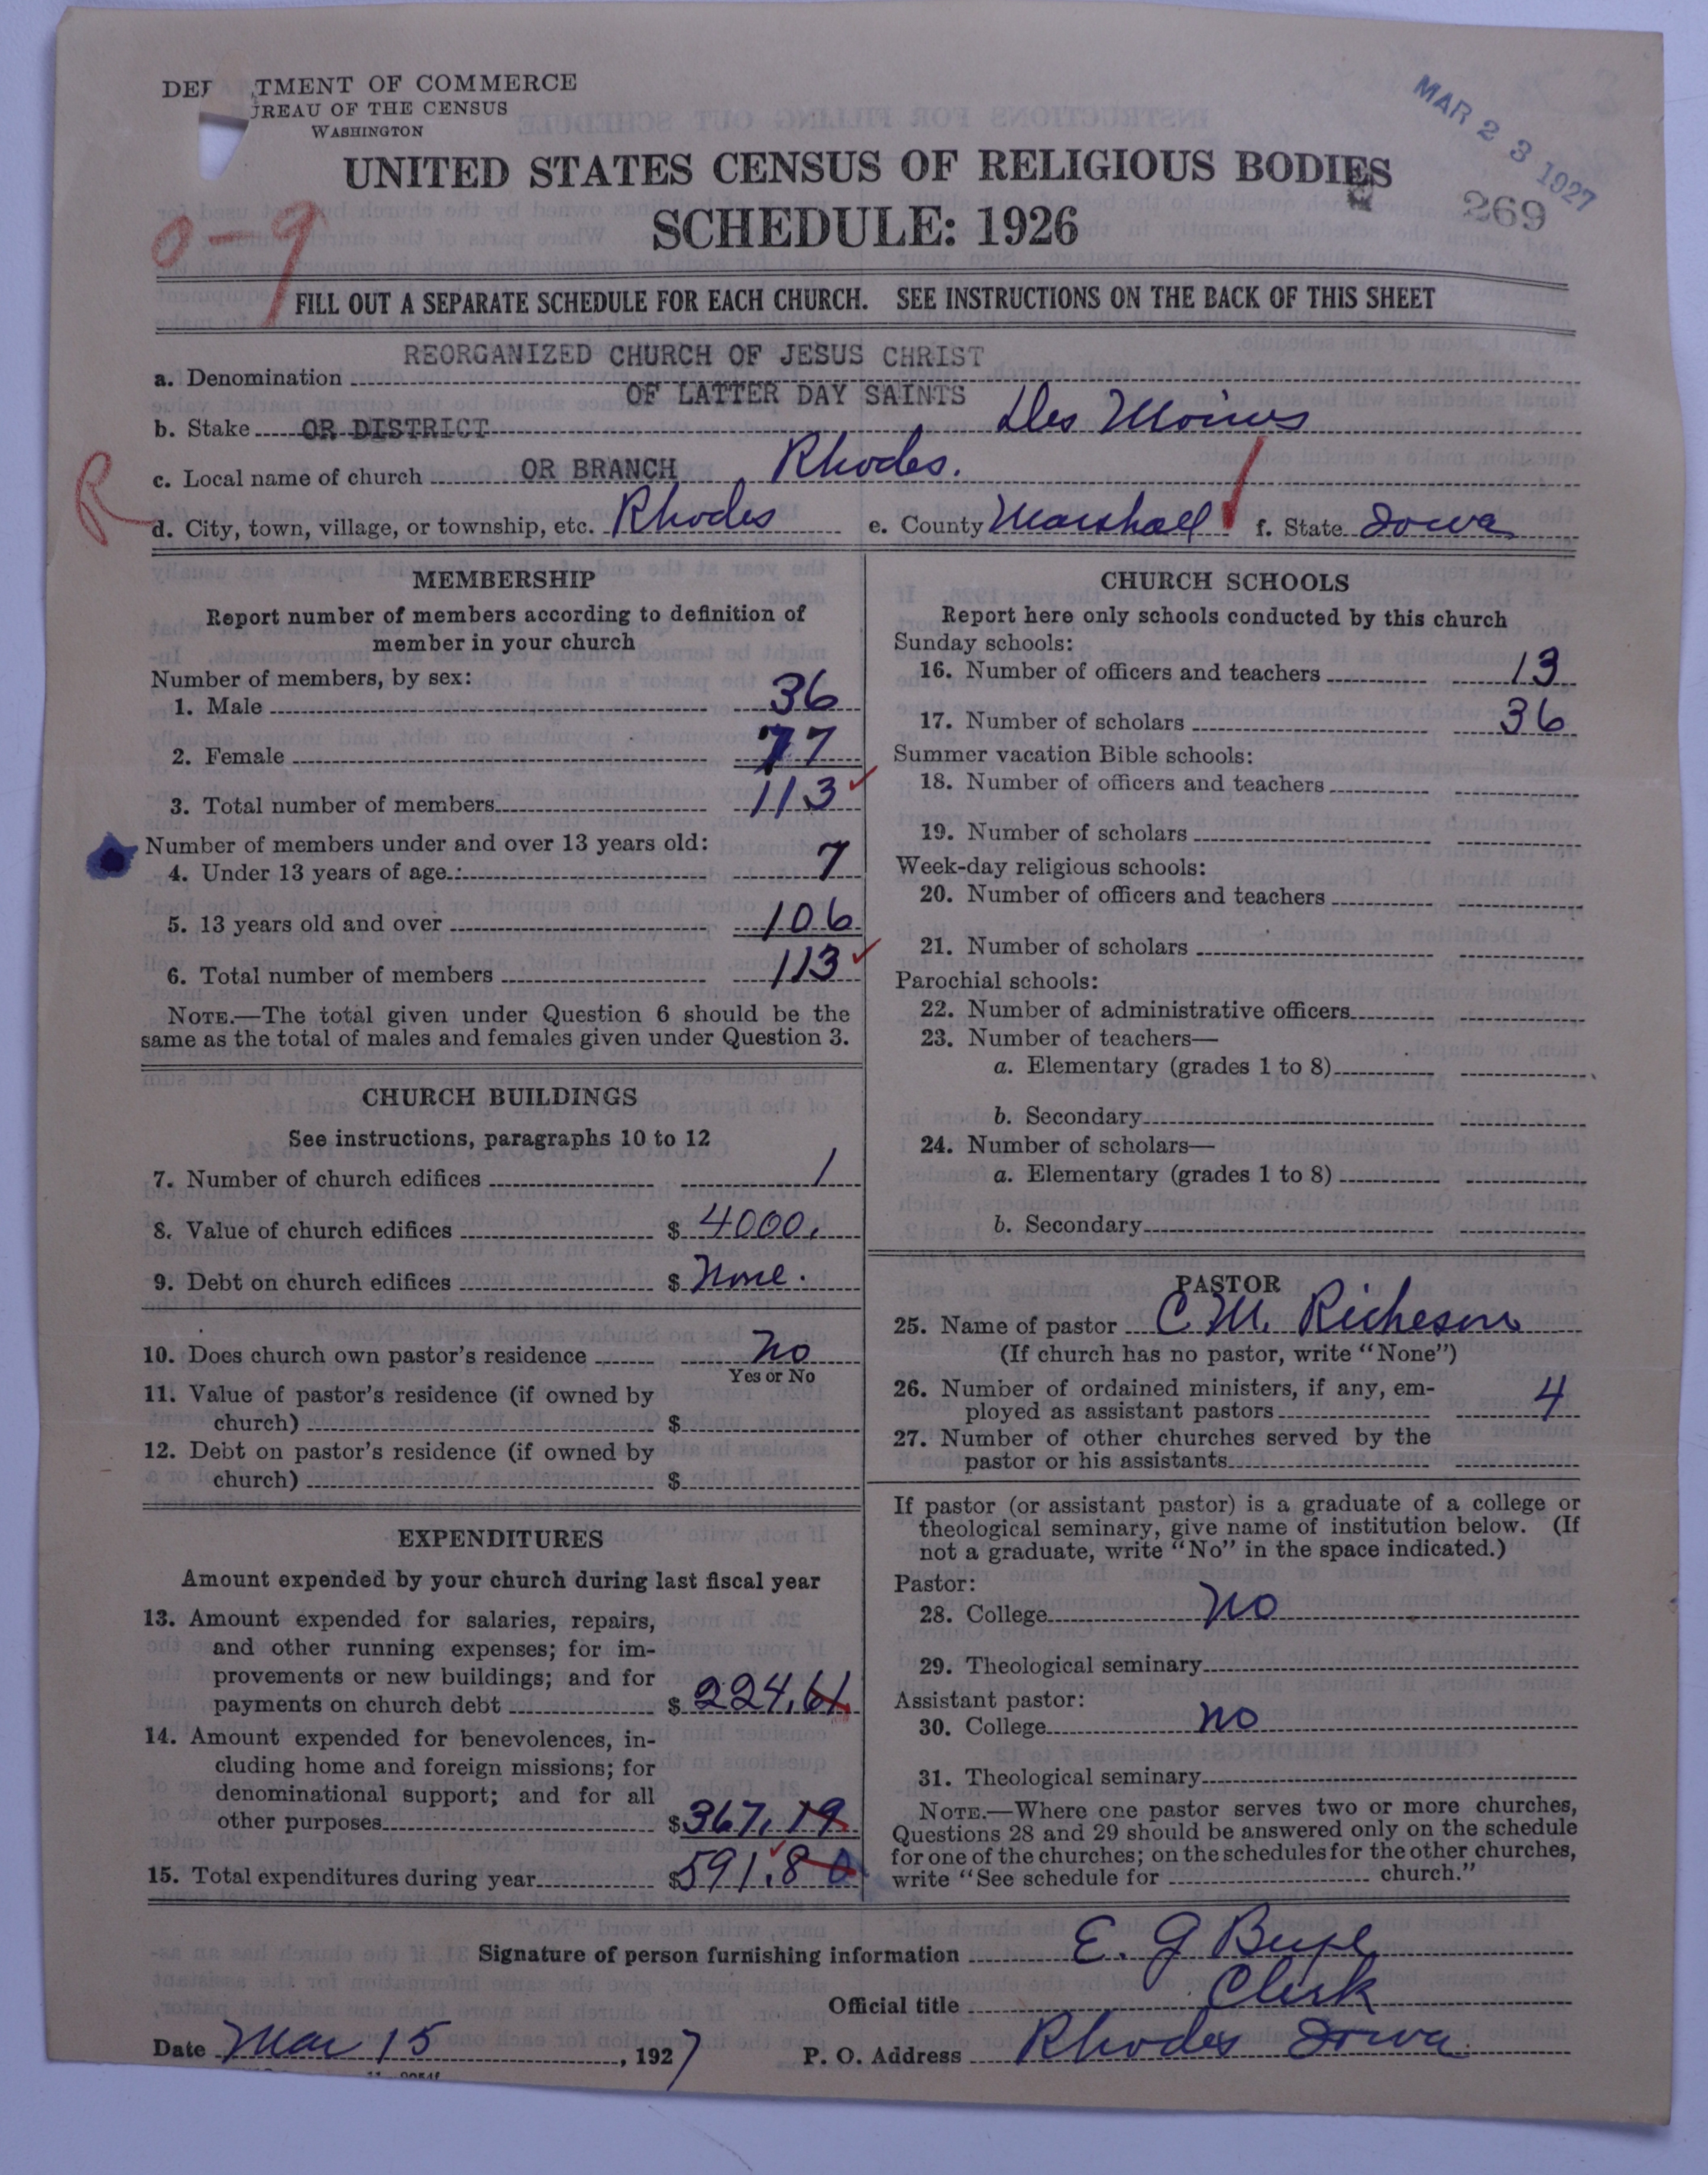 DEP TMENT OF COMMERCE
UREAU OF THE CENSUS
WASHINGTON
MAR 23 1927
269
UNITED STATES CENSUS OF RELIGIOUS BODIES
SCHEDULE: 1926
0-9
FILL OUT A SEPARATE SCHEDULE FOR EACH CHURCH. SEE INSTRUCTIONS ON THE BACK OF THIS SHEET
REORGANIZED CHURCH OF JESUS CHRIST
a. Denomination
OF LATTER DAY SAINTS
b. Stake OR DISTRICT Des Moines
c. Local name of church OR BRANCH Rhodes.
R
d. City, town, village, or township, etc. Rhodes e. County Marshall f. State Iowa
MEMBERSHIP
Report number of members according to definition of
member in your church
Number of members, by sex:
1. Male 36
2. Female 77
3. Total number of members 113 ✓
Number of members under and over 13 years old:
4. Under 13 years of age 7
5. 13 years old and over 106
6. Total number of members 113 ✓
NOTE.—The total given under Question 6 should be the
same as the total of males and females given under Question 3.
CHURCH BUILDINGS
See instructions, paragraphs 10 to 12
7. Number of church edifices 1
8. Value of church edifices $ 4000.
9. Debt on church edifices $ None.
10. Does church own pastor's residence No
Yes or No
11. Value of pastor's residence (if owned by
church) $
12. Debt on pastor's residence (if owned by
church) $
EXPENDITURES
Amount expended by your church during last fiscal year
13. Amount expended for salaries, repairs,
and other running expenses; for im-
provements or new buildings; and for
payments on church debt $ 224.61
14. Amount expended for benevolences, in-
cluding home and foreign missions; for
denominational support; and for all
other purposes $ 367.19
15. Total expenditures during year $ 591.80
CHURCH SCHOOLS
Report here only schools conducted by this church
Sunday schools:
16. Number of officers and teachers 13
17. Number of scholars 36
Summer vacation Bible schools:
18. Number of officers and teachers
19. Number of scholars
Week-day religious schools:
20. Number of officers and teachers
21. Number of scholars
Parochial schools:
22. Number of administrative officers
23. Number of teachers—
a. Elementary (grades 1 to 8)
b. Secondary
24. Number of scholars—
a. Elementary (grades 1 to 8)
b. Secondary
PASTOR
25. Name of pastor C M. Richeson
(If church has no pastor, write "None")
26. Number of ordained ministers, if any, em-
ployed as assistant pastors 4
27. Number of other churches served by the
pastor or his assistants
If pastor (or assistant pastor) is a graduate of a college or
theological seminary, give name of institution below. (If
not a graduate, write "No" in the space indicated.)
Pastor:
28. College No
29. Theological seminary
Assistant pastor:
30. College no
31. Theological seminary
NOTE.—Where one pastor serves two or more churches,
Questions 28 and 29 should be answered only on the schedule
for one of the churches; on the schedules for the other churches,
write "See schedule for church."
Signature of person furnishing information E. G
Official title Clerk
Date Mar 15, 1927 P. O. Address Rhodes Iowa